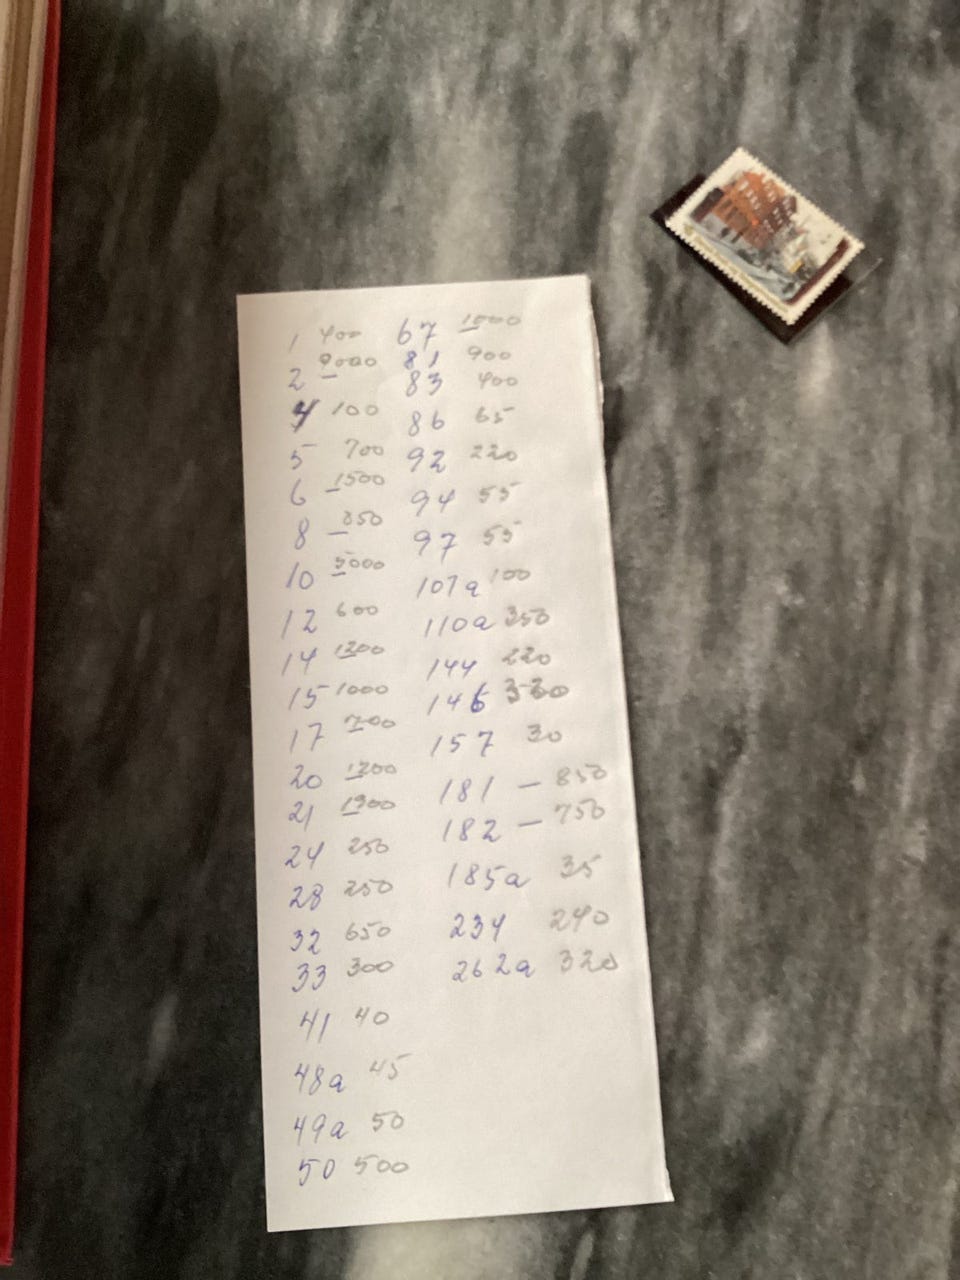 1 400
2 9000
4 100
5 700
6 1500
8 — 850
10 5000
12 600
14 1200
15 1000
17 700
20 1200
21 1900
24 250
28 250
32 650
33 300
41 40
48a 45
49a 50
50 500
67 1000
81 900
83 400
86 65
92 220
94 55
97 55
107a 100
110a 350
144 220
146
157 30
181 — 850
182 — 750
185a 35
234 240
262a 320